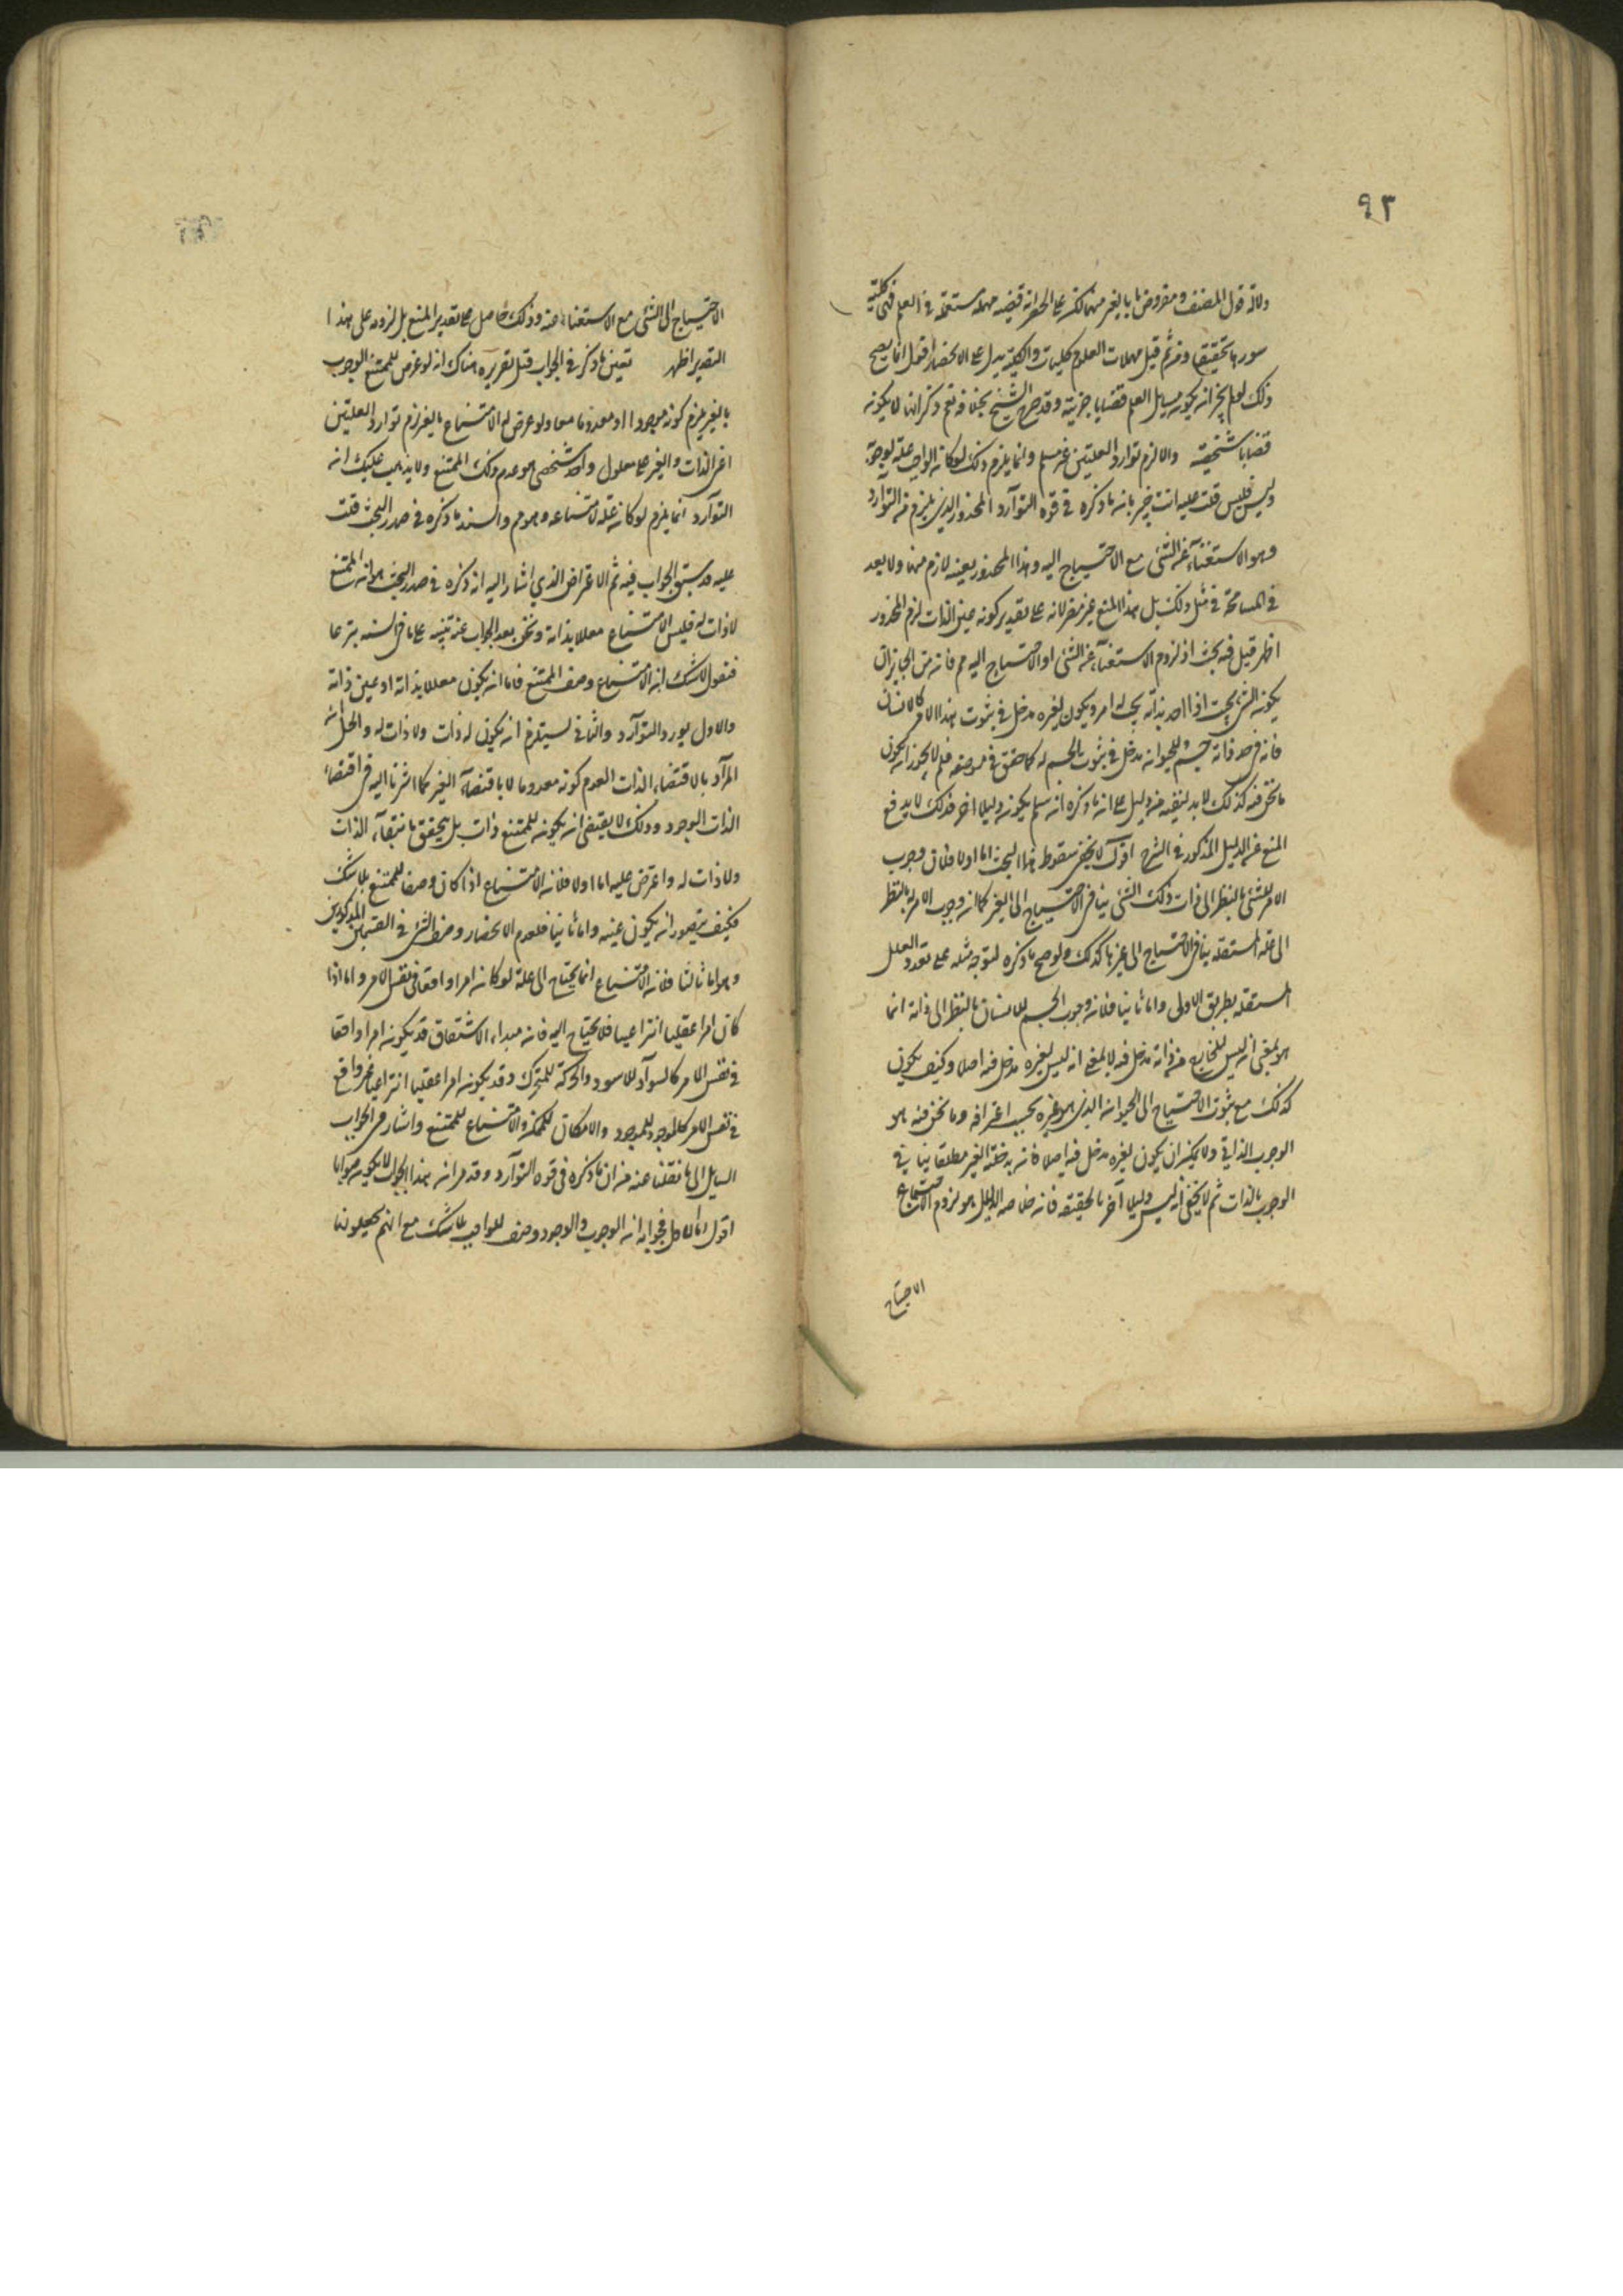 ٩٣
دلالة قول المصنف ومعروضها بالغير منهما ممكن على الحصر انه قضية مهملة مستعملة في العلم فهي كلية
سورها تحقيقا ومن ثم قيل مهملات العلوم كليات والكلية يدل على الانحصار اقول انما يصح
ذلك لو لم يجز ان يكون مسايل العلم قضايا جزئية وقد صرح الشيخ بخلافه نعم ذكر انها لا يكون
قضايا شخصية والا لزم توارد العلتين غير مسلم وانما يلزم ذلك لو كان الواجب علة لوجوبه
وليس فليس قلت عليه انت خبير بان ما ذكره في قوة التوارد المحذور الذي يلزم من التوارد
وهو الاستغناء عن الشئ مع الاحتياج اليه وهذا المحذور بعينه لازم منها ولا بعد
في المسامحة في مثل ذلك بل هذا المنع غير مضر لانه على تقدير كونه عين الذات لزم المحذور
اظهر قيل فيه بحث اذ لزوم الاستغناء عن الشئ او الاحتياج اليه مم فانه من الجايز ان
يكون الشئ بحيث اذا اخذ بذاته يجب له امر ويكون لغيره مدخل في ثبوت هذا الامر كالانسان
فانه في حد ذاته جسم وللحيوان مدخل في ثبوت الجسم له كما حقق في موضعه فلم لا يجوز ان يكون
ما نحن فيه كذلك لا بد لنفيه من دليل على ان ما ذكره ان سلم يكون دليلا اخر فذلك لا يدفع
المنع عن الدليل المذكور في الشرح اقول لا يخفى سقوط هذا البحث اما اولا فلان وجوب
الامر للشئ بالنظر الى ذات ذلك الشئ ينافي الاحتياج الى الغير كما ان وجوب الامر له بالنظر
الى علة مستقلة ينافي الاحتياج الى غيرها كذلك ولو صح ما ذكره لتوجه مثله على تعدد العلل
المستقلة بطريق الاولى واما ثانيا فلان وجوب الجسم للانسان بالنظر الى ذاته انما
هو بمعنى انه ليس للخارج عن ذاته مدخل فيه لا بمعنى انه ليس لغيره مدخل فيه اصلا وكيف يكون
كذلك مع ثبوت الاحتياج الى الحيوان الذي هو غيره بحسب اعترافه وما نحن فيه هو
الوجوب الذاتي ولا يمكن ان يكون لغيره مدخل فيه اصلا فان مدخلية الغير مطلقا ينافي
الوجوب بالذات ثم لا يخفى انه ليس دليلا آخر بالحقيقة فان خلاصة الدليل هو لزوم اجتماع
الاحتياج
الاحتياج الى الشئ مع الاستغناء عنه وذلك حاصل على تقدير المنع بل لزومه على هذا
التقدير اظهر تعين ما ذكر في الجواب قبل تقريره هناك انه لو عرض للممتنع الوجوب
بالغير يلزم كونه موجودا او معدوما معا ولو عرض له الامتناع بالغير لزم توارد العلتين
اعني الذات والغير على معلول واحد شخصي هو عدم ذلك الممتنع ولا يذهب عليك ان
التوارد انما يلزم لو كان علة لامتناعه وهو مم والسند ما ذكره في صدر البحث قلت
عليه قد سبق الجواب فيه ثم الاعتراض الذي اشار اليه ان ذكره في صدر البحث هو ان الممتنع
لا ذات له فليس الامتناع معللا بذاته ونحن بعد الجواب عنه تنبيه على ما في السند تبرعا
فنقول لا شك ان الامتناع وصف الممتنع فاما ان يكون معللا بذاته او عين ذاته
والاول يورد التوارد والثاني يستلزم ان يكون له ذات ولا ذات له والحل ان
المراد بالاقتضاء الذات العدم كونه معدوما لا باقتضاء الغير كما اشرنا اليه في اقتضاء
الذات الوجود وذلك لا يقتضي ان يكون للممتنع ذات بل يتحقق بانتفاء الذات
ولا ذات له واعترض عليه اما اولا فلان الامتناع اذا كان وصفا للممتنع بلا شك
فكيف يتصور ان يكون عينه واما ثانيا فلعدم الانحصار وصف الشئ في القسمين المذكورين
وهو اما ثالثا فلان الامتناع انما يحتاج الى علة لو كان امرا واقعا في نفس الامر واما اذا
كان امرا عقليا انتزاعيا فلا يحتاج اليه فان مبداء الاشتقاق قد يكون امرا واقعا
في نفس الامر كالسواد للاسود والحركة للمتحرك وقد يكون امرا عقليا انتزاعيا غير واقع
في نفس الامر كالوجود للموجود والامكان للممكن والامتناع للممتنع واشار في الجواب
السايل الى ما نقلنا عنه من ان ما ذكره في قوة التوارد وقد مر ان هذا الجواب لا يكون صوابا
اقول اما الاول فجوابه ان الوجوب والوجود وصف للواجب بلا شك مع انهم يجعلونها